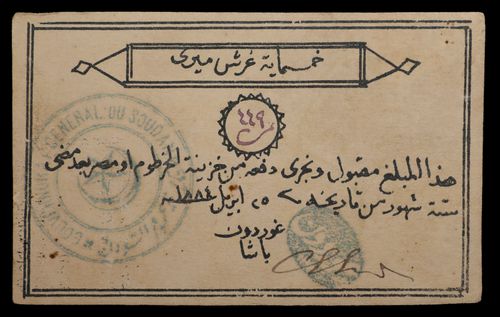 خمسماية غرش ميرى
٤٤٩
هذا المبلغ مقبول ويجرى دفعه من خزينة الخرطوم او مصر بعد مضى
ستة شهور من تاريخه ٢٥ ابريل ١٨٨٤ سنة
غوردون
باشا
GENERAL DU SOUDAN